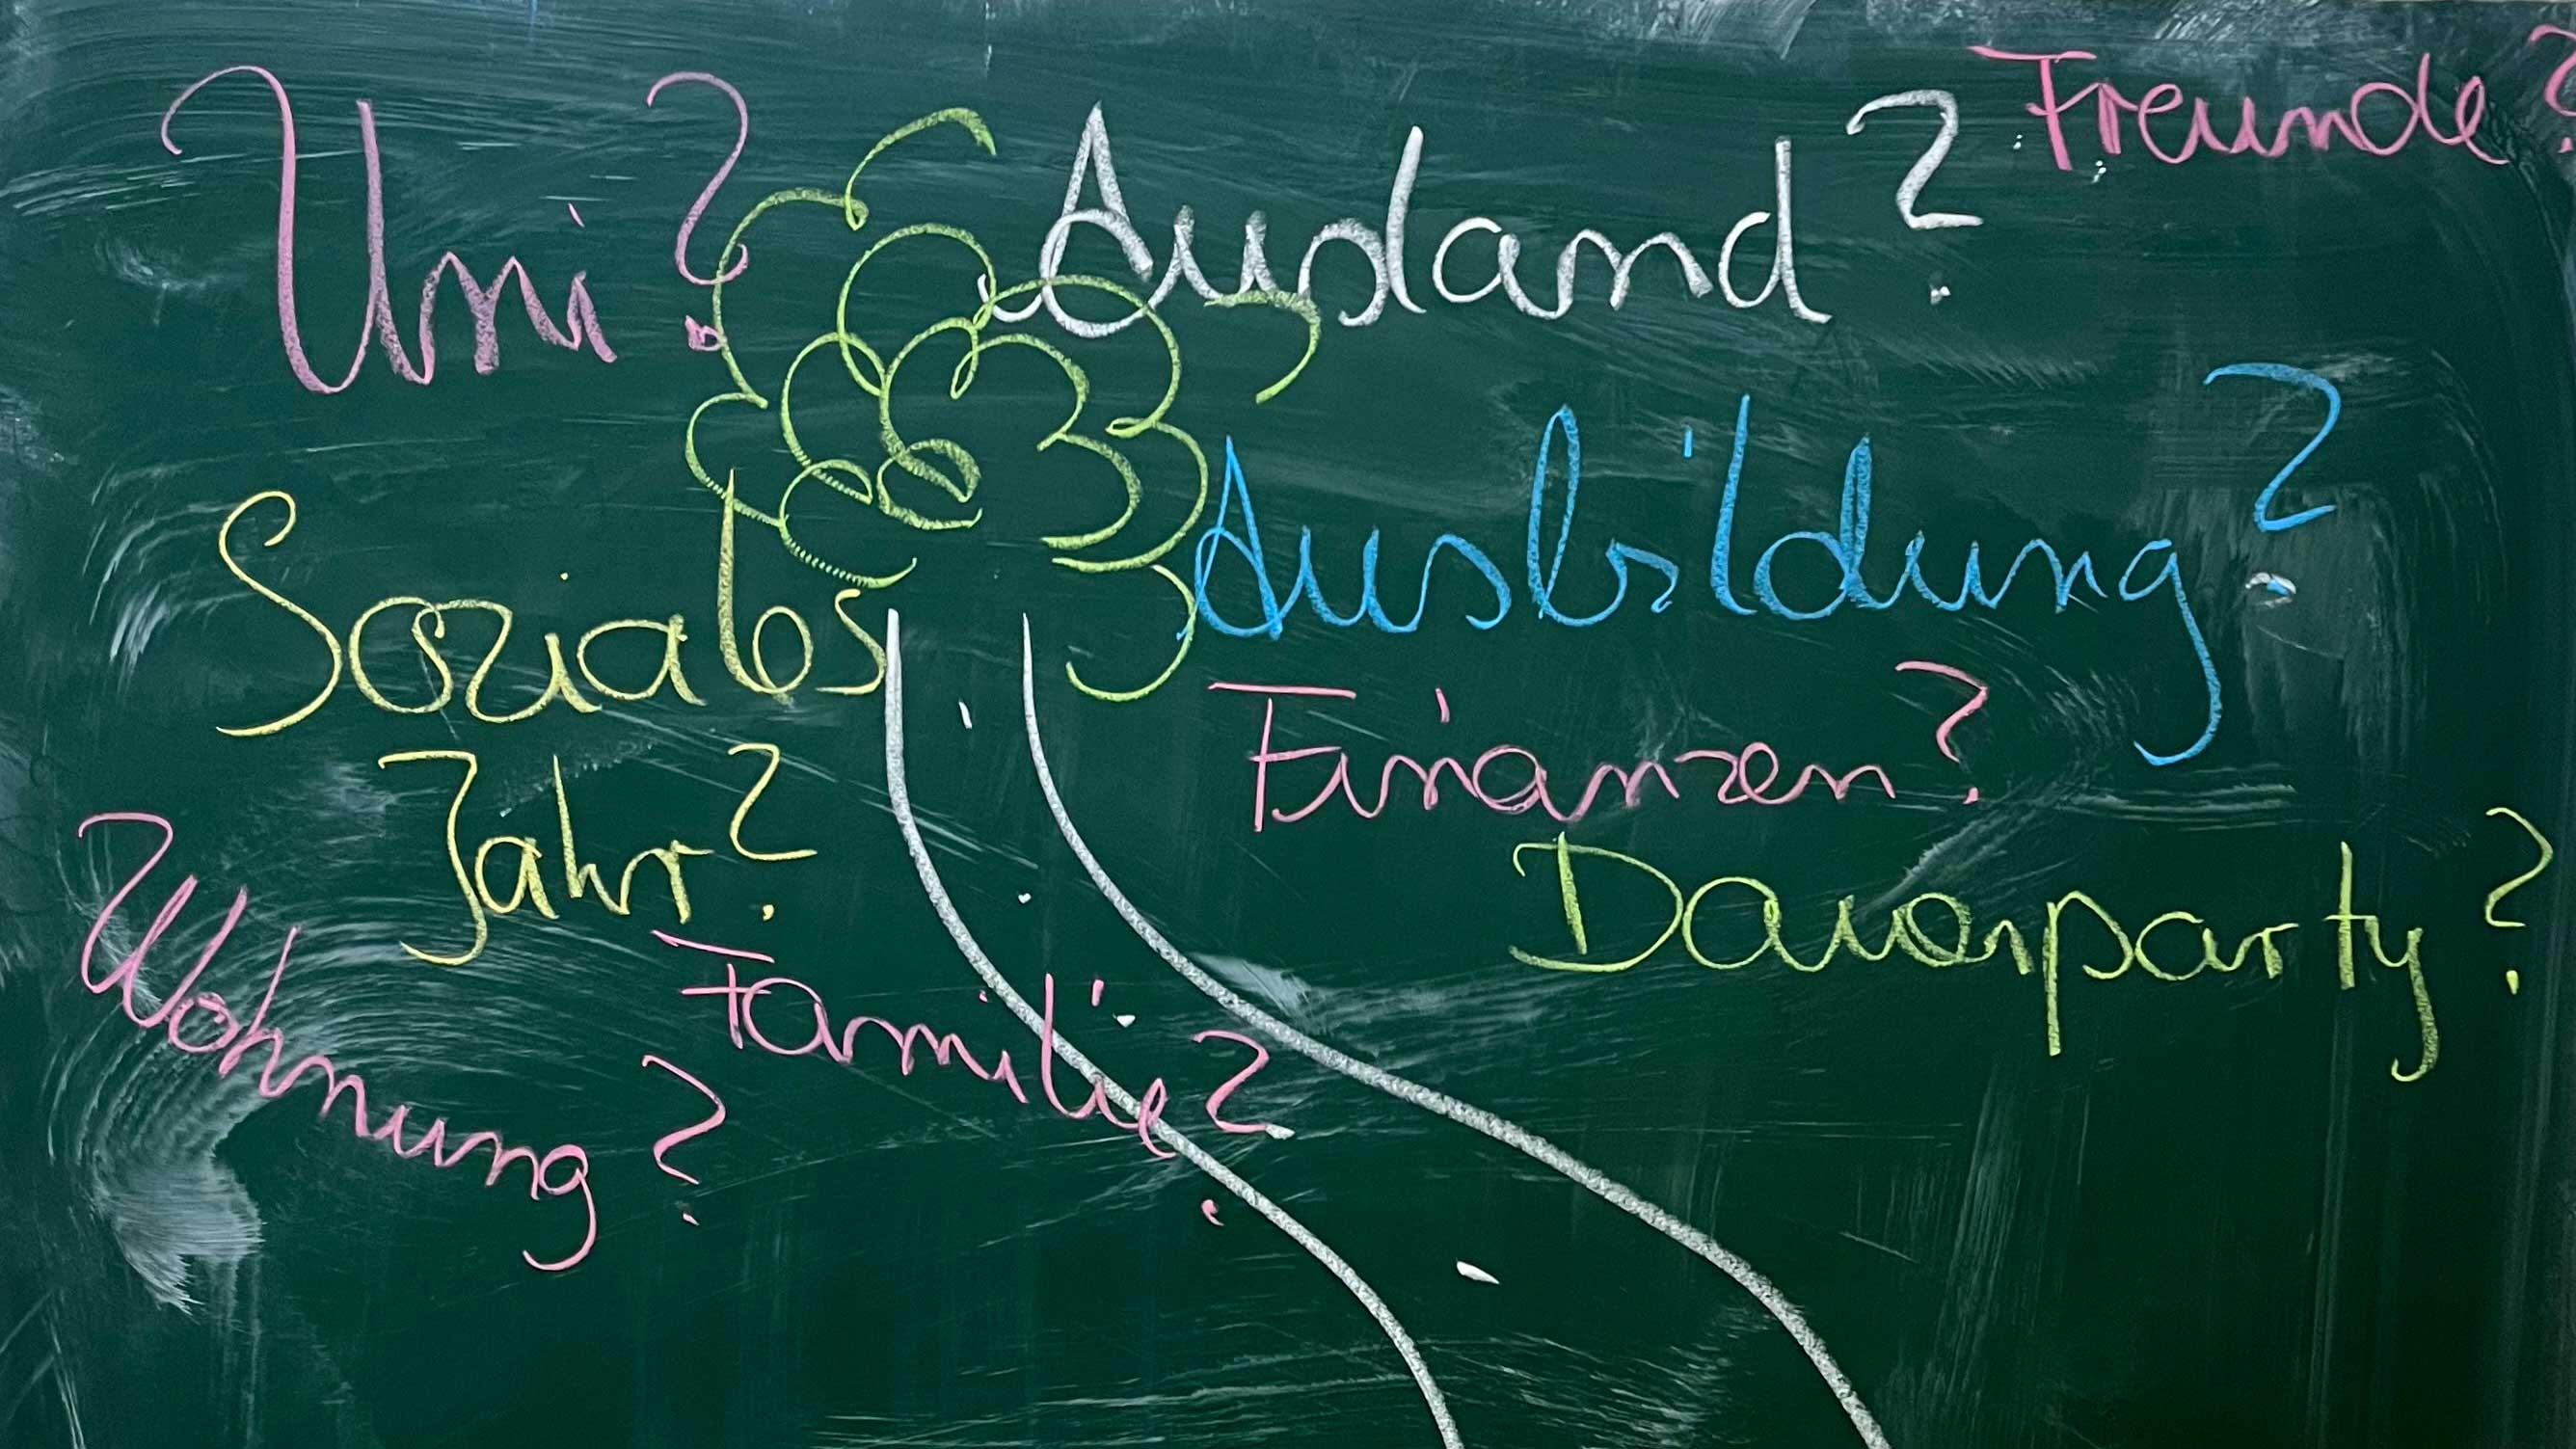 Freunde?
Uni?
Ausland?
Ausbildung?
Soziales
Jahr?
Finanzen?
Dauerparty?
Wohnung?
Familie?